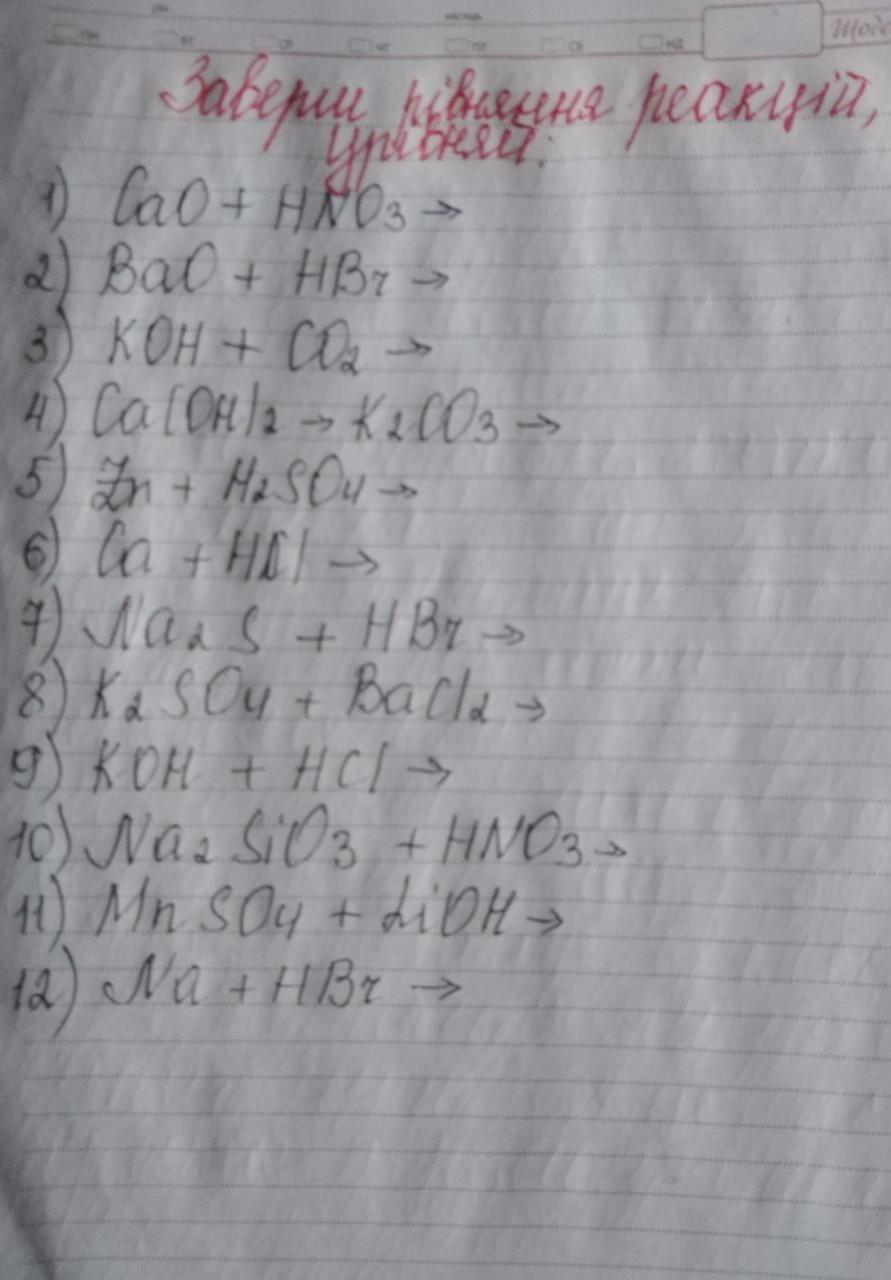 Щоде
Заверши рівняння реакцій,
урівняй:
1) CaO + HNO3 →
2) BaO + HBr →
3) KOH + CO2 →
4) Ca(OH)2 → K2CO3 →
5) Zn + H2SO4 →
6) Ca + HCl →
7) Na2S + HBr →
8) K2SO4 + BaCl2 →
9) KOH + HCl →
10) Na2SiO3 + HNO3 →
11) MnSO4 + LiOH →
12) Na + HBr →